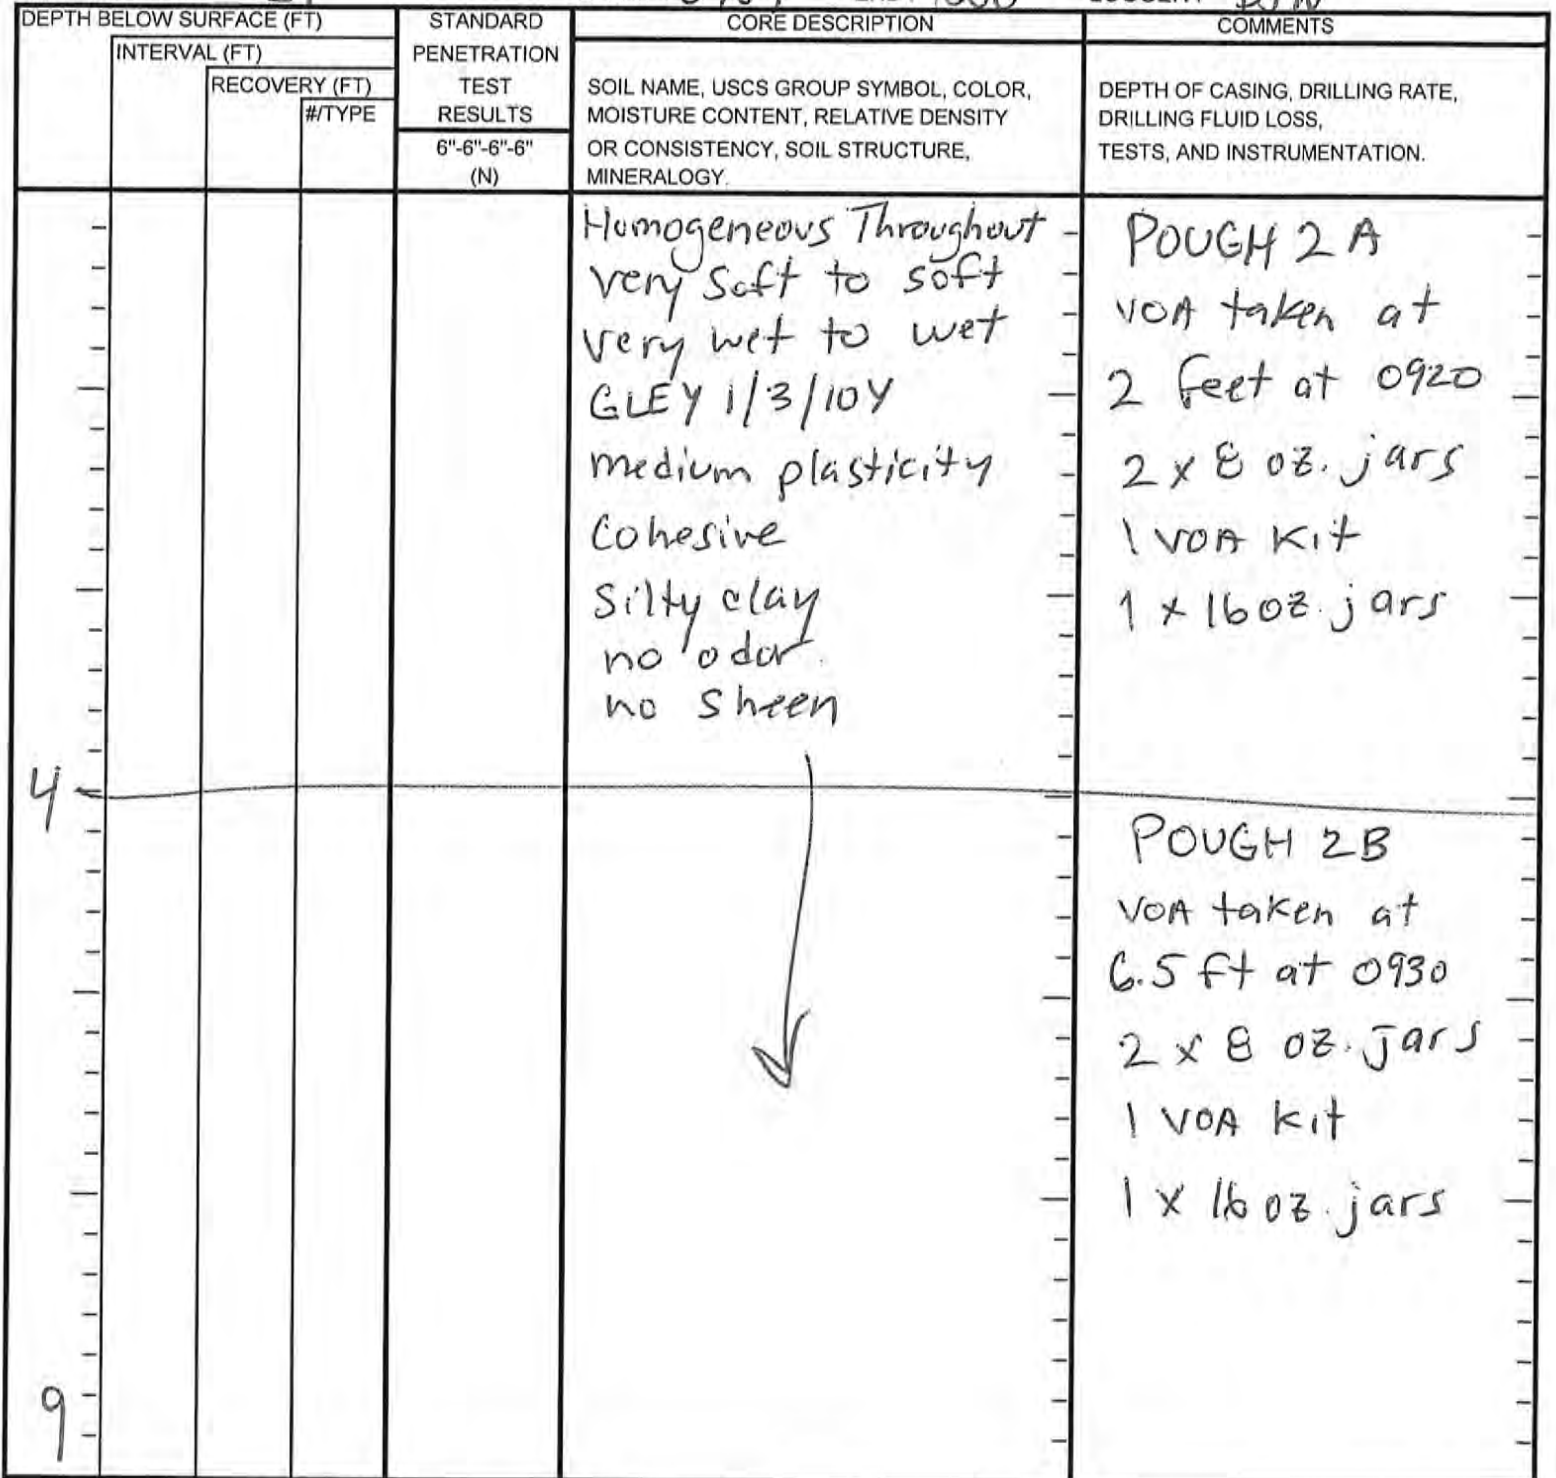 DEPTH BELOW SURFACE (FT)
INTERVAL (FT)
RECOVERY (FT)
#/TYPE
STANDARD
PENETRATION
TEST
RESULTS
6"-6"-6"-6"
(N)
CORE DESCRIPTION
SOIL NAME, USCS GROUP SYMBOL, COLOR,
MOISTURE CONTENT, RELATIVE DENSITY
OR CONSISTENCY, SOIL STRUCTURE,
MINERALOGY.
COMMENTS
DEPTH OF CASING, DRILLING RATE,
DRILLING FLUID LOSS,
TESTS, AND INSTRUMENTATION.
Homogeneous Throughout
very soft to soft
very wet to wet
GLEY 1/3/10Y
medium plasticity
Cohesive
Silty clay
no odor
no sheen
POUGH 2A
VOA taken at
2 feet at 0920
2 x 8 oz. jars
1 VOA Kit
1 x 16 oz. jars
4
POUGH 2B
VOA taken at
6.5 ft at 0930
2 x 8 oz. jars
1 VOA Kit
1 x 16 oz. jars
9